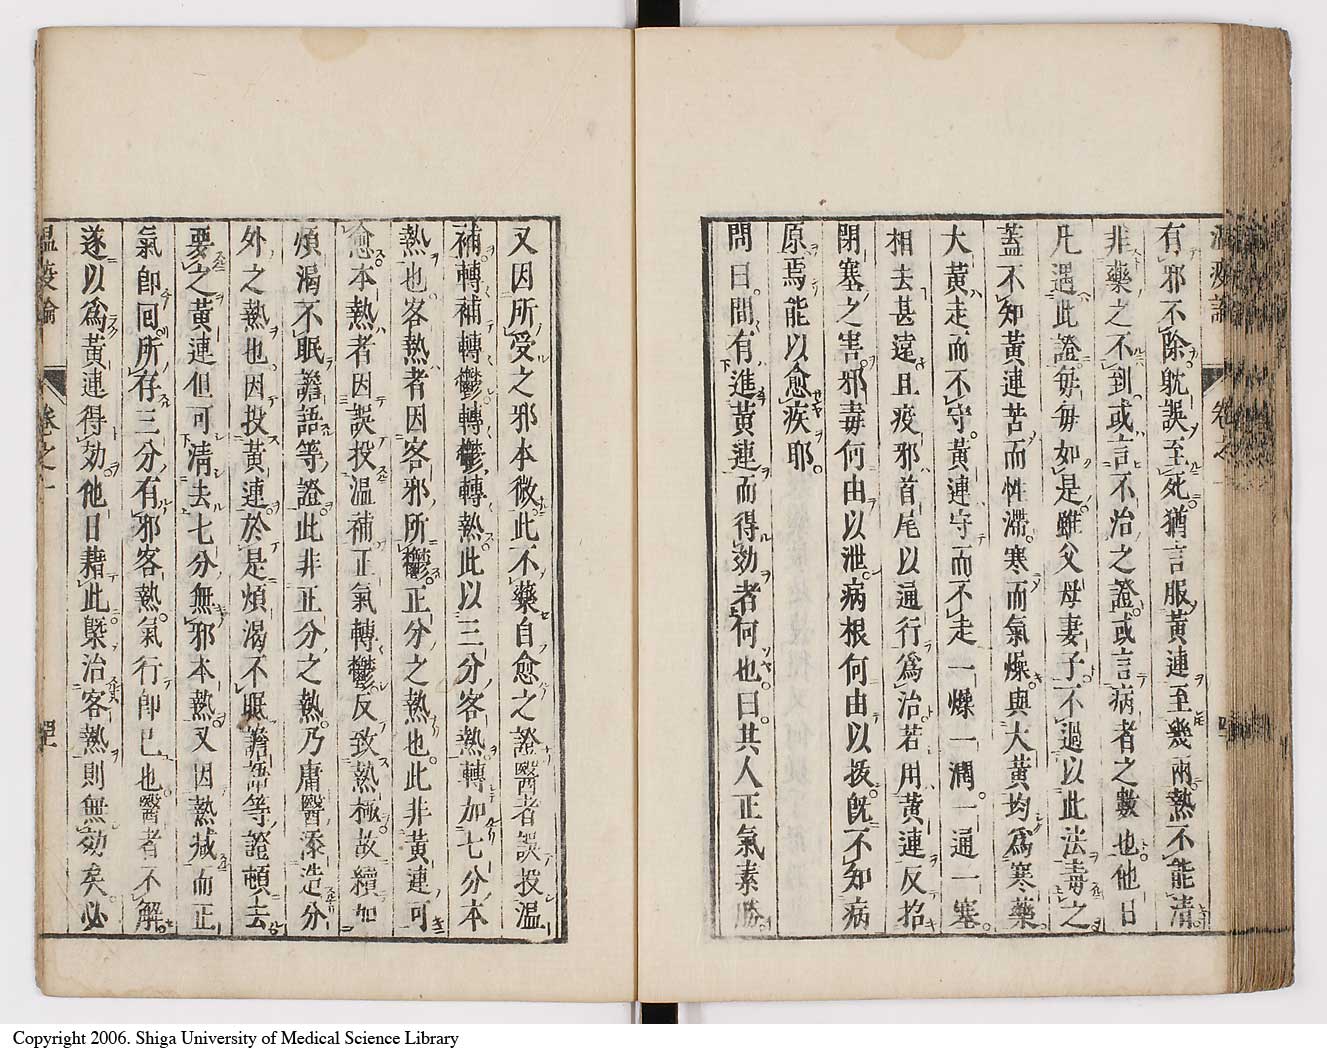 有邪不除躭誤至死猶言服黃連至幾兩熱不能清
非藥之不到或言不治之證或言病者之數也他日
凡遇此證每每如是雖父母妻子不過以此法毒之
蓋不知黃連苦而性滯寒而氣燥與大黃均爲寒藥
大黃走而不守黃連守而不走一燥一潤一通一塞
相去甚遠且疫邪首尾以通行爲治若用黃連反招
閉塞之害邪毒何由以泄病根何由以拔既不知病
原焉能以愈疾耶
問曰間有進黃連而得効者何也曰其人正氣素勝
又因所受之邪本微此不藥自愈之證醫者誤投溫
補轉補轉鬱轉鬱轉熱此以三分客熱轉加七分本
熱也客熱者因客邪所鬱正分之熱也此非黃連可
愈本熱者因誤投溫補正氣轉鬱反致熱極故續加
煩渴不眠譫語等證此非正分之熱乃庸醫添造分
外之熱也因投黃連於是煩渴不眠譫語等證頓去
要之黃連但可清去七分無邪本熱又因熱减而正
氣即回所存三分有邪客熱氣行即已也醫者不解
遂以爲黃連得効他日藉此槩治客熱則無効矣必
溫疫論 卷之一
Copyright 2006. Shiga University of Medical Science Library